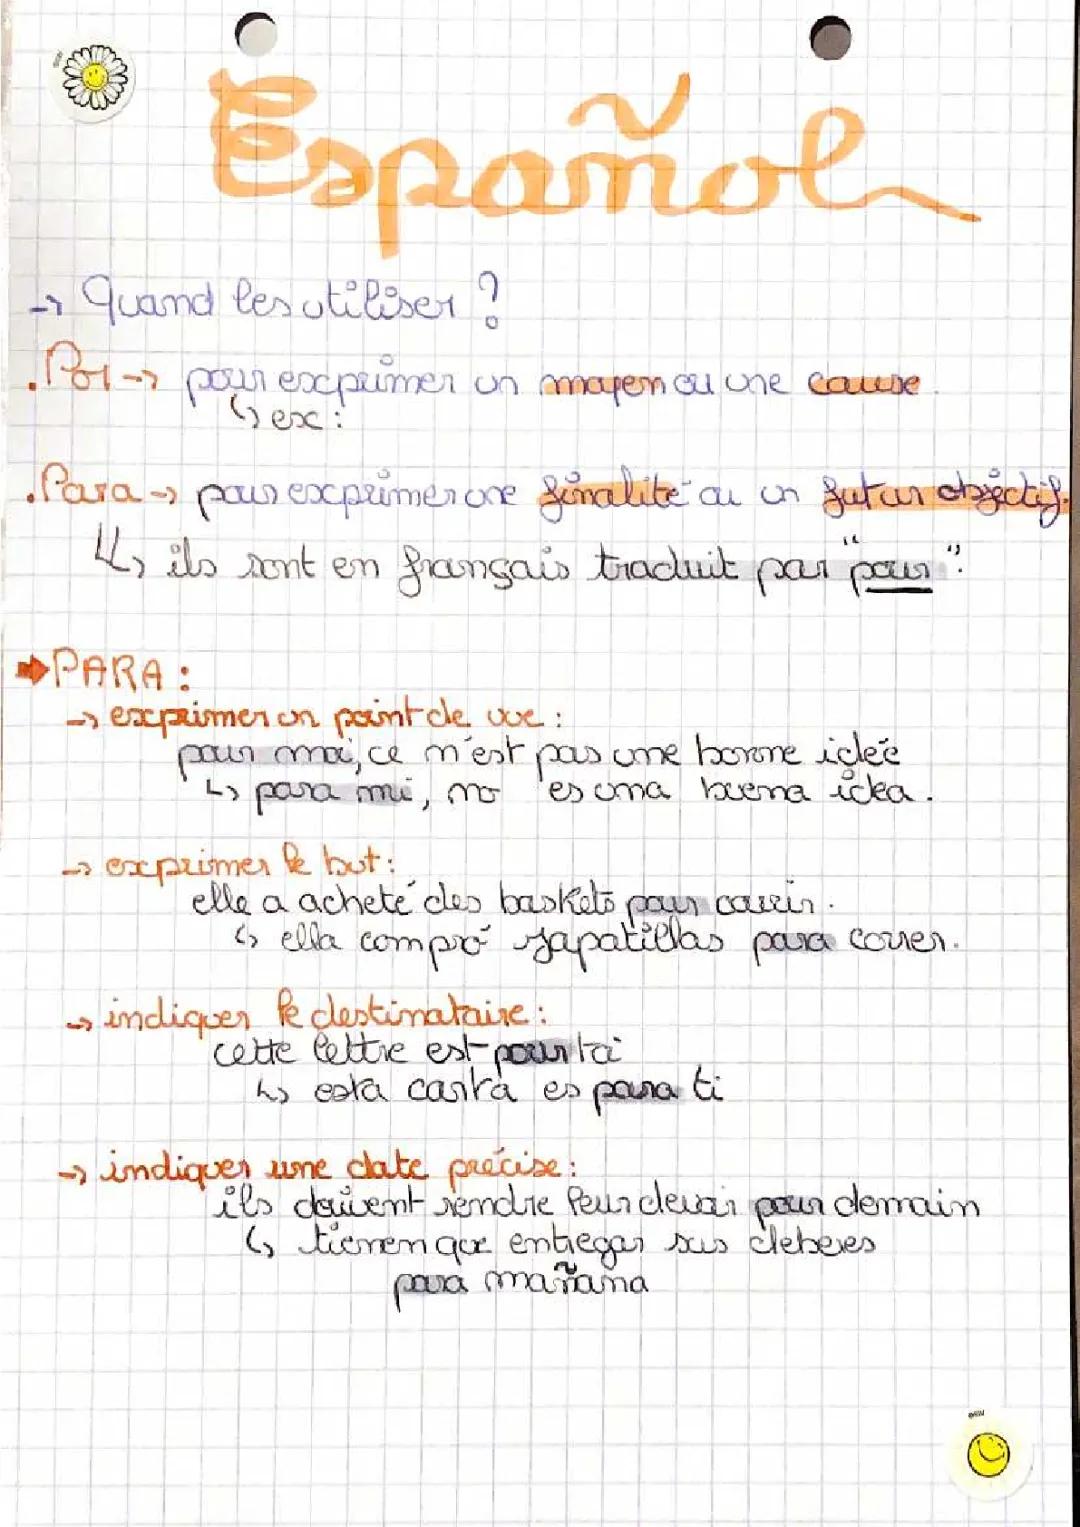 Español
→ Quand les utiliser ?
. Por → pour exprimer un moyen ou une cause.
↳ ex :
. Para → pour exprimer une finalité ou un futur objectif.
↳ ils sont en français traduit par "pour".
➡ PARA :
→ exprimer un point de vue :
pour moi, ce n'est pas une bonne idée
↳ para mi, no es una buena idea.
→ exprimer le but :
elle a acheté des baskets pour courir.
↳ ella compró zapatillas para correr.
→ indiquer le destinataire :
cette lettre est pour toi
↳ esta carta es para ti
→ indiquer une date précise :
ils doivent rendre leur devoir pour demain
↳ tienen que entregar sus deberes
para mañana